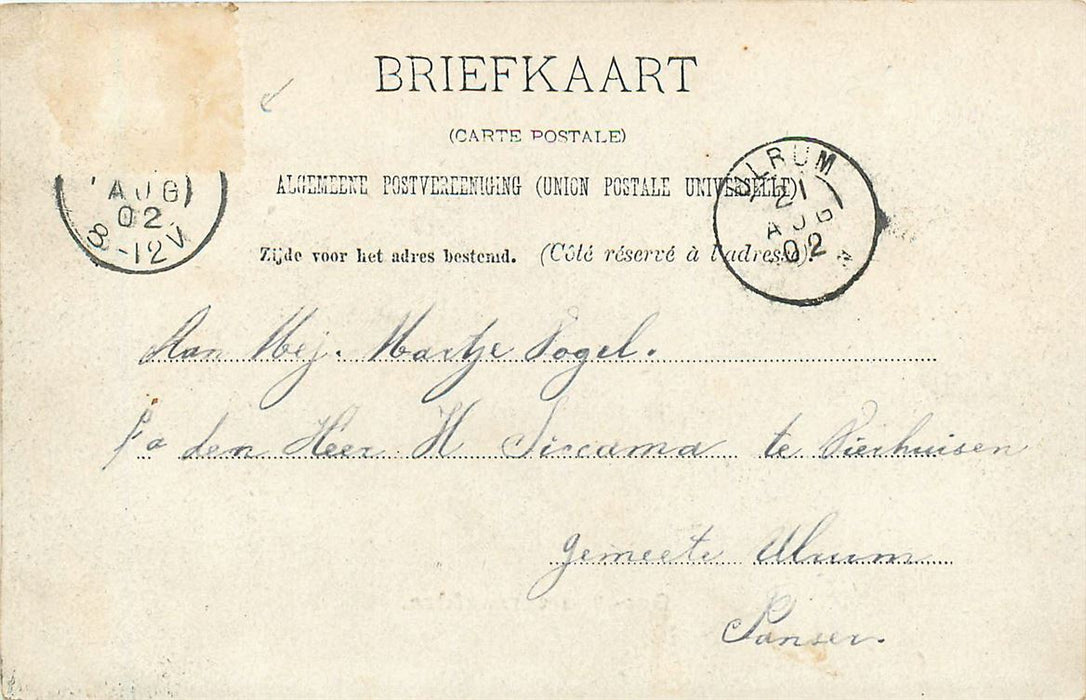 BRIEFKAART
(CARTE POSTALE)
ALGEMEENE POSTVEREENIGING (UNION POSTALE UNIVERSELLE)
Zijde voor het adres bestemd. (Côté réservé à l'adresse)
AUG
02
8-12V
ULRUM
21
AUG
02
N
Aan Mej. Martje Vogel.
den Heer H Siccama te Vierhuisen
gemeete Ulrum
Panser.